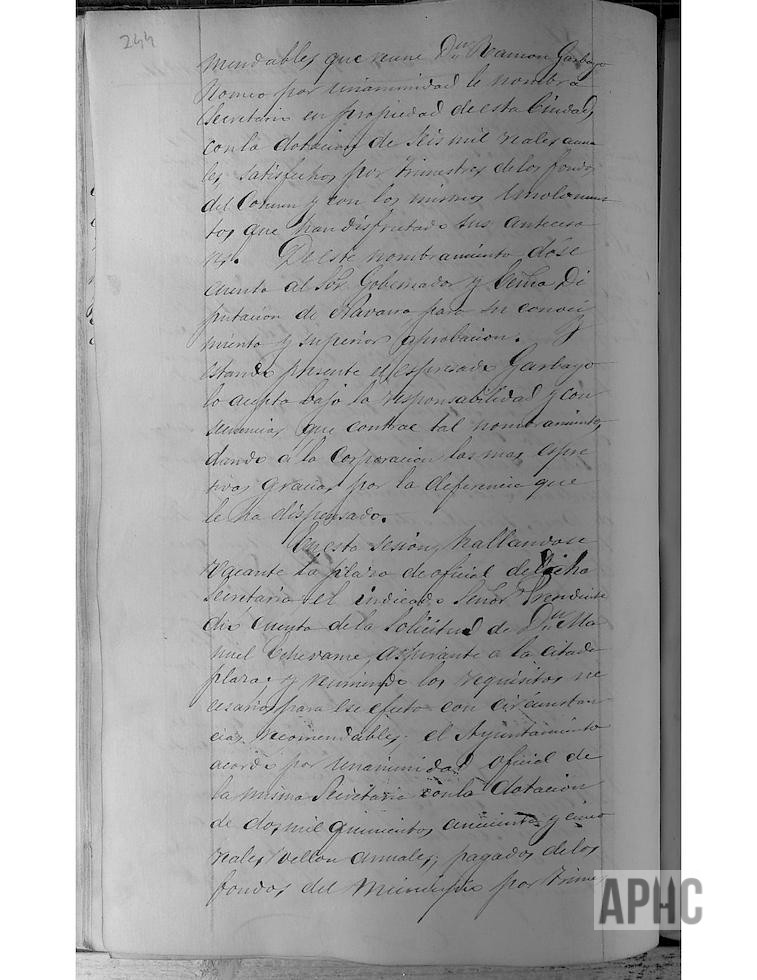 244
mendables que reune Dn. Ramon Garbayo
Romeo por unanimidad le nombra
Secretario en propiedad de esta Ciudad,
con la dotacion de seis mil reales anua
les, satisfechos por trimestres de los fondos
del Comun y con los mismos emolumen
tos que han disfrutado sus anteceso
res. De este nombramiento dése
cuenta al Sor. Gobernador y Exma. Di
putacion de Navarra para su conoci
miento y superior aprobacion. Y
estando presente el espresado Garbayo
lo acepta bajo la responsabilidad y con
secuencias que contrae tal nombramiento,
dando á la Corporacion las mas espre
sivas gracias por la deferencia que
le ha dispensado.
En esta sesion, hallandose
vacante la plaza de oficial de dicha
secretaria el indicado Señor Presidente
dió cuenta de la solicitud de Dn. Ma
nuel Echevarne, aspirante a la citada
plaza; y reuniendo los requisitos ne
cesarios para ese efecto con circunstan
cias recomendables, el Ayuntamiento
acordó por unanimidad oficial de
la misma Secretaria con la dotacion
de dos mil quinientos cincuenta y cinco
reales vellon anuales, pagados de los
fondos del Municipio por trimes
APHC